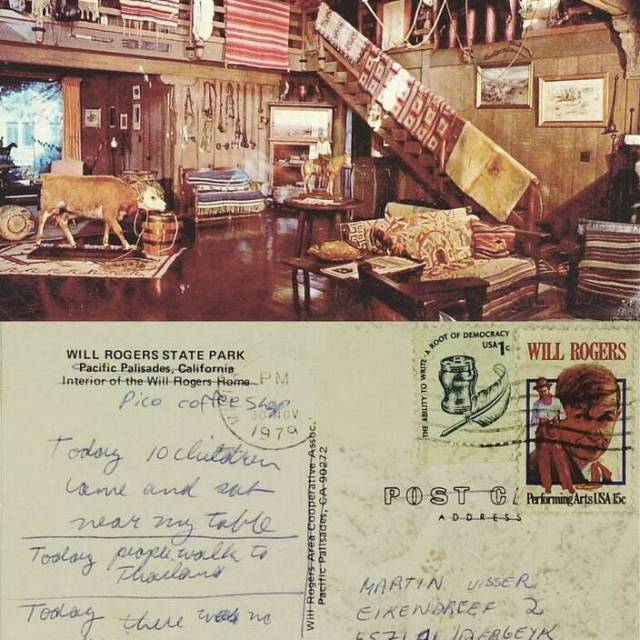 WILL ROGERS STATE PARK
Pacific Palisades, California
Interior of the Will Rogers Home
Pico coffee Shop
Today 10 children
came and sat
near my table
Today people walk to
Thailand
Today there was no
Will Rogers Area Cooperative Assoc.
Pacific Palisades, CA 90272
PM
30 NOV
1979
THE ABILITY TO WRITE · A ROOT OF DEMOCRACY
USA 1c
WILL ROGERS
Performing Arts USA 15c
POST
ADDRESS
MARTIN VISSER
EIKENDREEF 2
5571